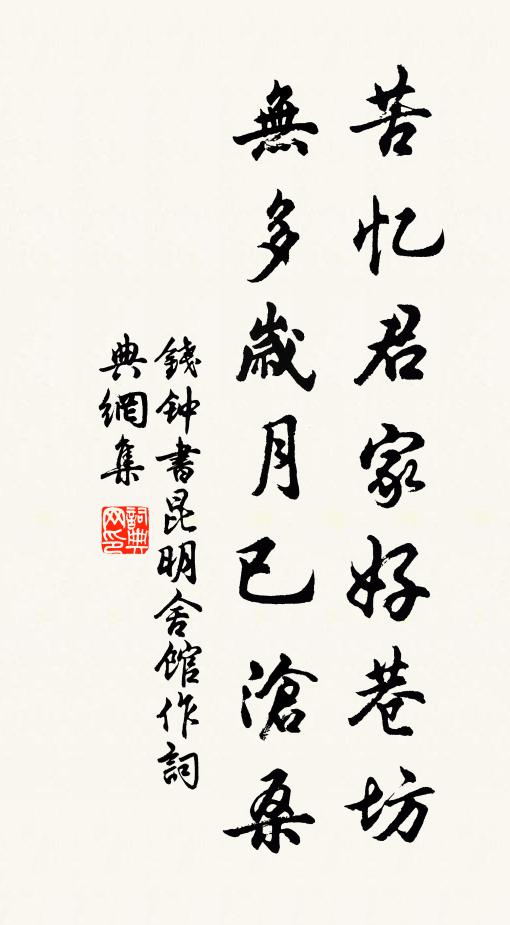 苦忆君家好巷坊
無多歲月已滄桑
錢钟書昆明舍館作詞
典網集
詞典网印